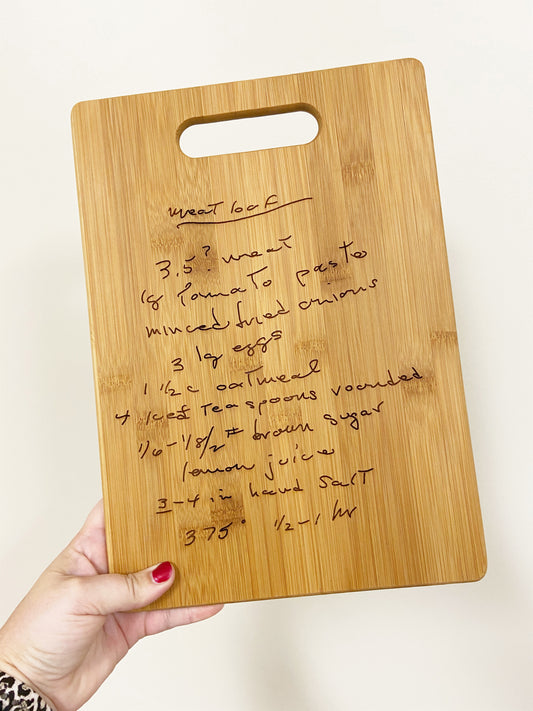 meat loaf
3.5? meat
lg Tomato paste
minced fried onions
3 lg eggs
1 1/2 c oatmeal
4 iced Teaspoons rounded
1/6-1/8/2# brown sugar
lemon juice
3-4 in hand SalT
375° 1/2-1 hr